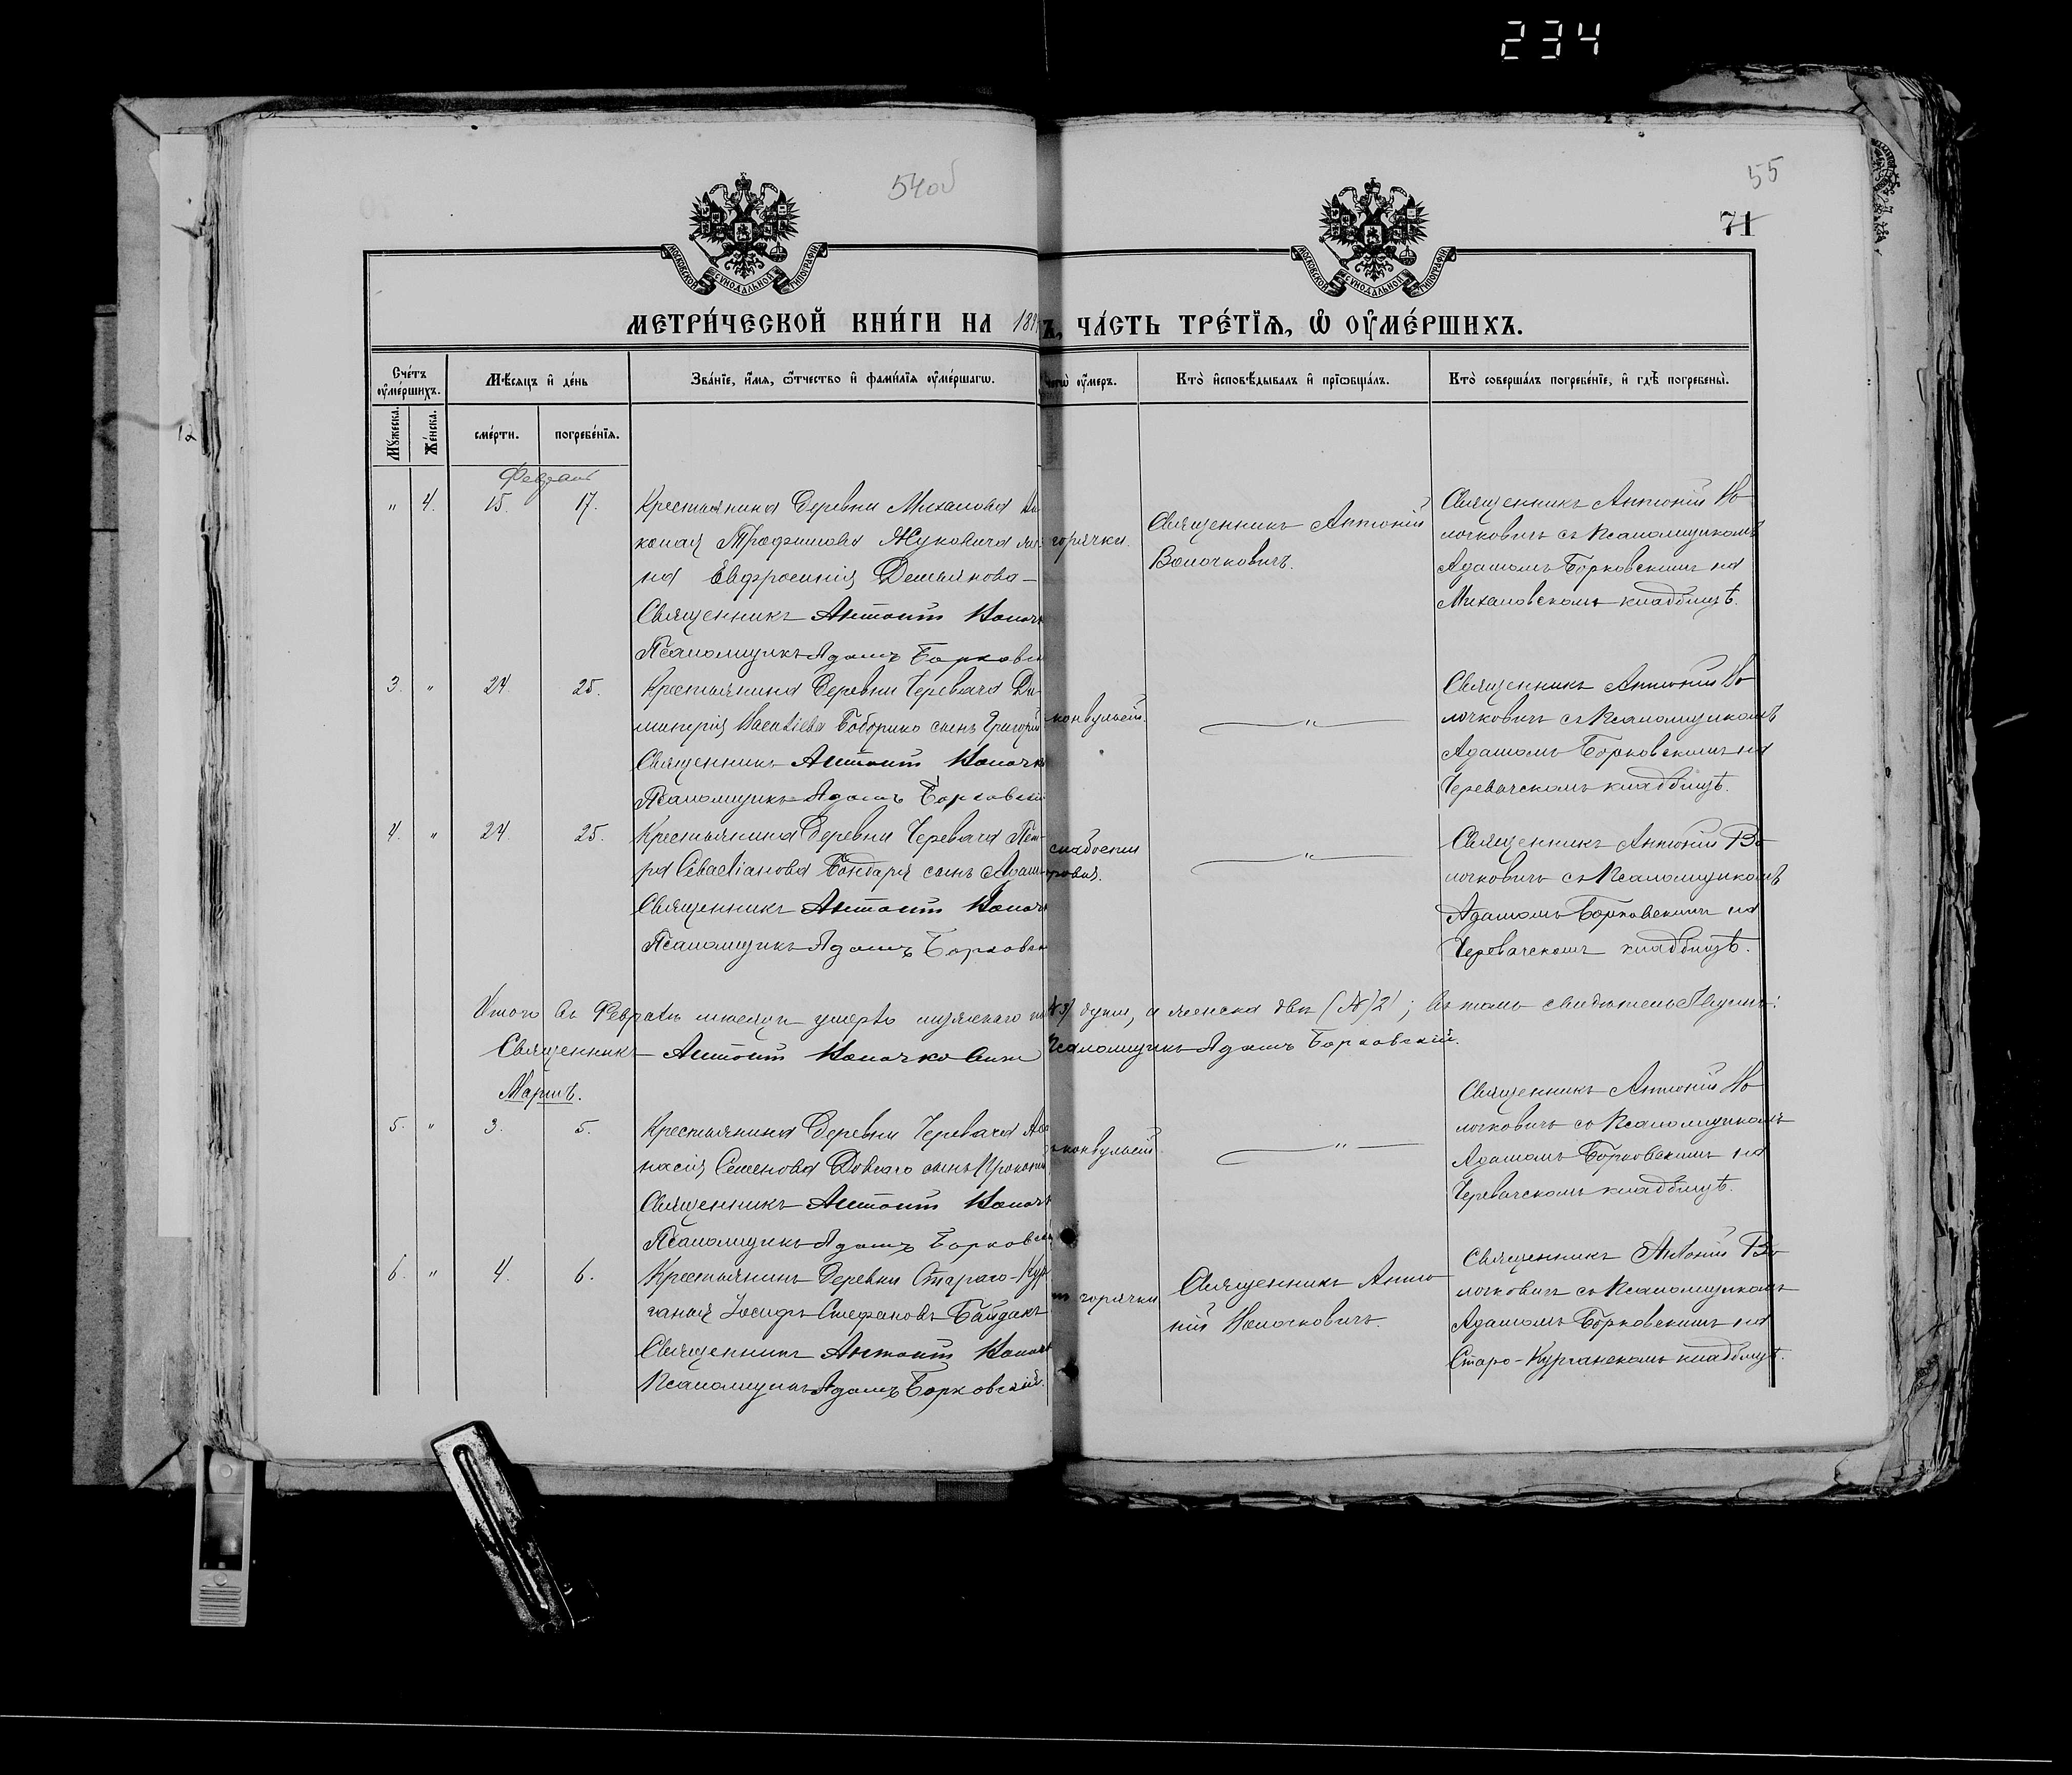 234
54об
55
71
МОСКОВСКОЙ СѴНОДАЛЬНОЙ ТИПОГРАФІИ
МОСКОВСКОЙ СѴНОДАЛЬНОЙ ТИПОГРАФІИ
МЕТРИ́ЧЕСКОЙ КНИ́ГИ НА 189 Ъ, ЧА́СТЬ ТРЕ́ТЇѦ, Ѽ ОУ҆МЕ́РШИХЪ.
Сче́тъ оу҆ме́ршихъ.
Мѣ́сяцъ и҆ де́нь
Зва́нїе, и҆́мя, ѻ҆́тчество и҆ фами́лїя оу҆ме́ршагѡ.
чегѡ̀ оу҆́меръ.
Кто̀ и҆сповѣ́дывалъ и҆ прїѡбща́лъ.
Кто̀ соверша́лъ погребе́нїе, и҆ гдѣ̀ погребены̀.
Му́жеска.
Же́нска.
сме́рти.
погребе́нїя.
12
Февраль
" 4. 15. 17. Крестьянина деревни Михалова Ни
колая Трофимова Жуковича же
на Евфросинія Демьянова
Священникъ Антоній Волоч
Псаломщикъ Адамъ Борковск
горячки.
Священникъ Антоній
Волочковичъ.
Священникъ Антоній Во
лочковичъ съ Псаломщикомъ
Адамомъ Борковскимъ на
Михаловскомъ кладбищѣ.
3. " 24. 25. Крестьянина деревни Черевача Ди
митрія Василіева Бобрико сынъ Григорій
Священникъ Антоній Волочк
Псаломщикъ Адамъ Борковскій
конвульсій.
"
Священникъ Антоній Во
лочковичъ съ Псаломщикомъ
Адамомъ Борковскимъ на
Черевачскомъ кладбищѣ.
4. " 24. 25. Крестьянина деревни Черевача Пет
ра Севастіанова Бондаря сынъ Адам
Священникъ Антоній Волоч
Псаломщикъ Адамъ Борковск
слабости
"
Священникъ Антоній Во
лочковичъ съ Псаломщикомъ
Адамомъ Борковскимъ на
Черевачскомъ кладбищѣ.
Итого въ Февралѣ мѣсяцѣ умерло мужескаго души, а женска двѣ (№ 2); въ томъ свидѣтельствуемъ:
Священникъ Антоній Волочковичъ Псаломщикъ Адамъ Борковскій.
Мартъ.
5. " 3. 5. Крестьянина деревни Черевача Аѳа
насія Семенова Довгаго сынъ Прокопій
Священникъ Антоній Волоч
Псаломщикъ Адамъ Борковск
конвульсій
"
Священникъ Антоній Во
лочковичъ съ Псаломщикомъ
Адамомъ Борковскимъ на
Черевачскомъ кладбищѣ.
6. " 4. 6. Крестьянинъ деревни Стараго-Кур
ганья Іосифъ Стефановъ Байдакъ
Священникъ Антоній Волоч
Псаломщикъ Адамъ Борковскій.
горячки
Священникъ Анто
ній Волочковичъ.
Священникъ Антоній Во
лочковичъ съ Псаломщикомъ
Адамомъ Борковскимъ на
Старо-Курганскомъ кладбищѣ.